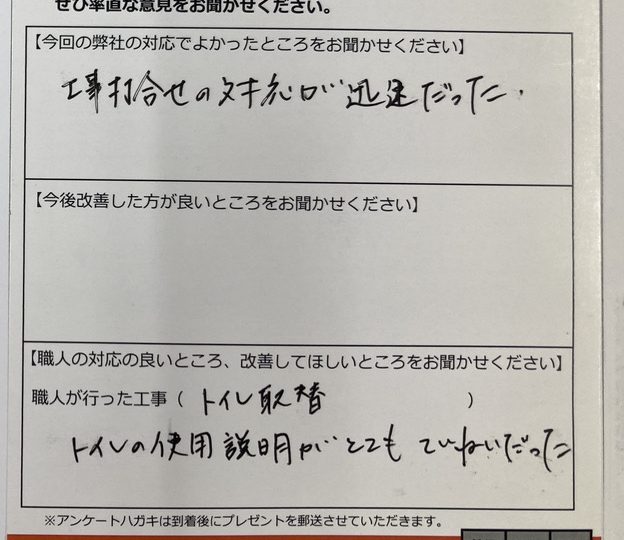 ぜひ率直な意見をお聞かせください。
【今回の弊社の対応でよかったところをお聞かせください】
工事打合せの対応が迅速だった.
【今後改善した方が良いところをお聞かせください】
【職人の対応の良いところ、改善してほしいところをお聞かせください】
職人が行った工事（トイレ取替）
トイレの使用説明がとてもていねいだった
※アンケートハガキは到着後にプレゼントを郵送させていただきます。